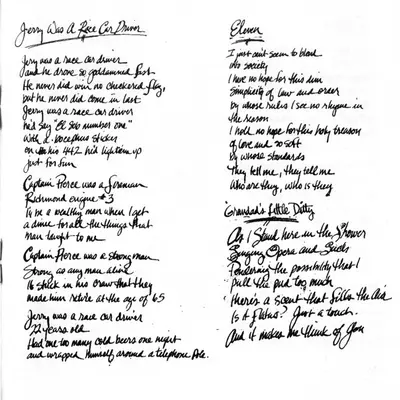 Jerry Was A Race Car Driver
Jerry was a race car driver
and he drove so goddamned fast
He never did win no checkered flag,
but he never did come in last
Jerry was a race car driver
he'd say "El Solo number one"
With a Bocephus sticker
on his 442 he'd light em up
Just for fun
Captain Pierce was a fireman
Richmond engine #3
I'll be a wealthy man when I get
a dime for all the things that
man taught to me
Captain Pierce was a strong man
Strong as any man alive
It stuck in his craw that they
made him retire at the age of 65
Jerry was a race car driver
22 years old
Had one too many cold beers one night
and wrapped himself around a telephone Pole.
Eleven
I just can't seem to blend
into society
I have no hope for this dim
simplicity of law and order
by whose rules I see no rhyme in
the reason
I hold no hope for this holy treason
of love and so soft
by whose standards
They tell me, they tell me
Who are they, who is they
Grandad's Little Ditty
As I Stand here in the Shower
Singing Opera and Such
Pondering the possibility that I
pull the pud too much
there's a scent that fills the Air
Is it flatus? Just a touch.
And it makes me think of you